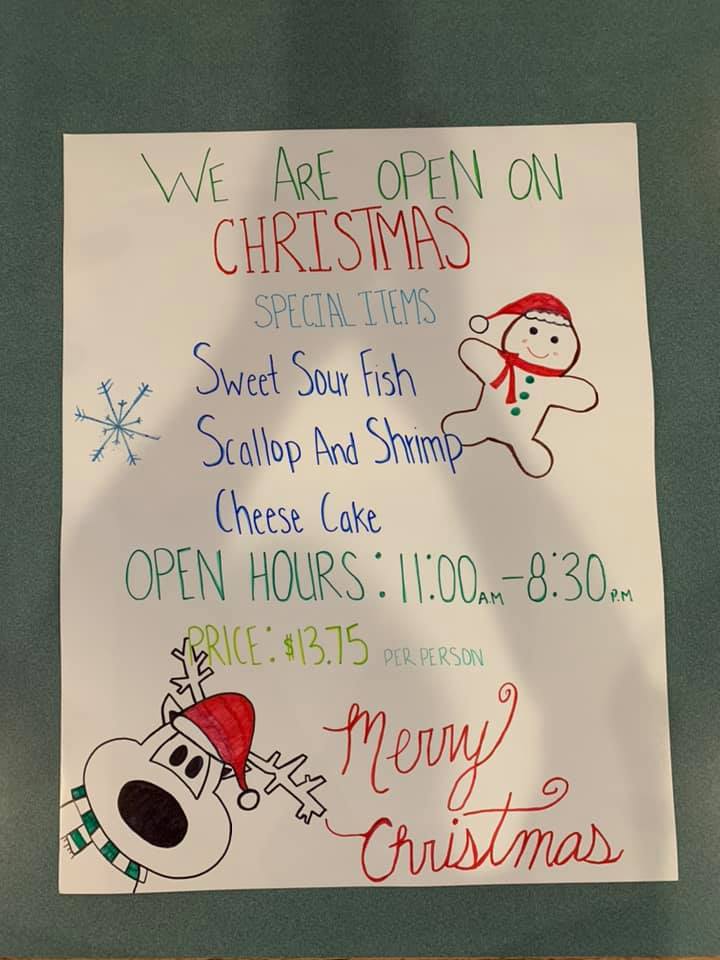 WE ARE OPEN ON
CHRISTMAS
SPECIAL ITEMS
Sweet Sour Fish
Scallop And Shrimp
Cheese Cake
OPEN HOURS: 11:00 A.M - 8:30 P.M
PRICE: $13.75 PER PERSON
Merry
Christmas